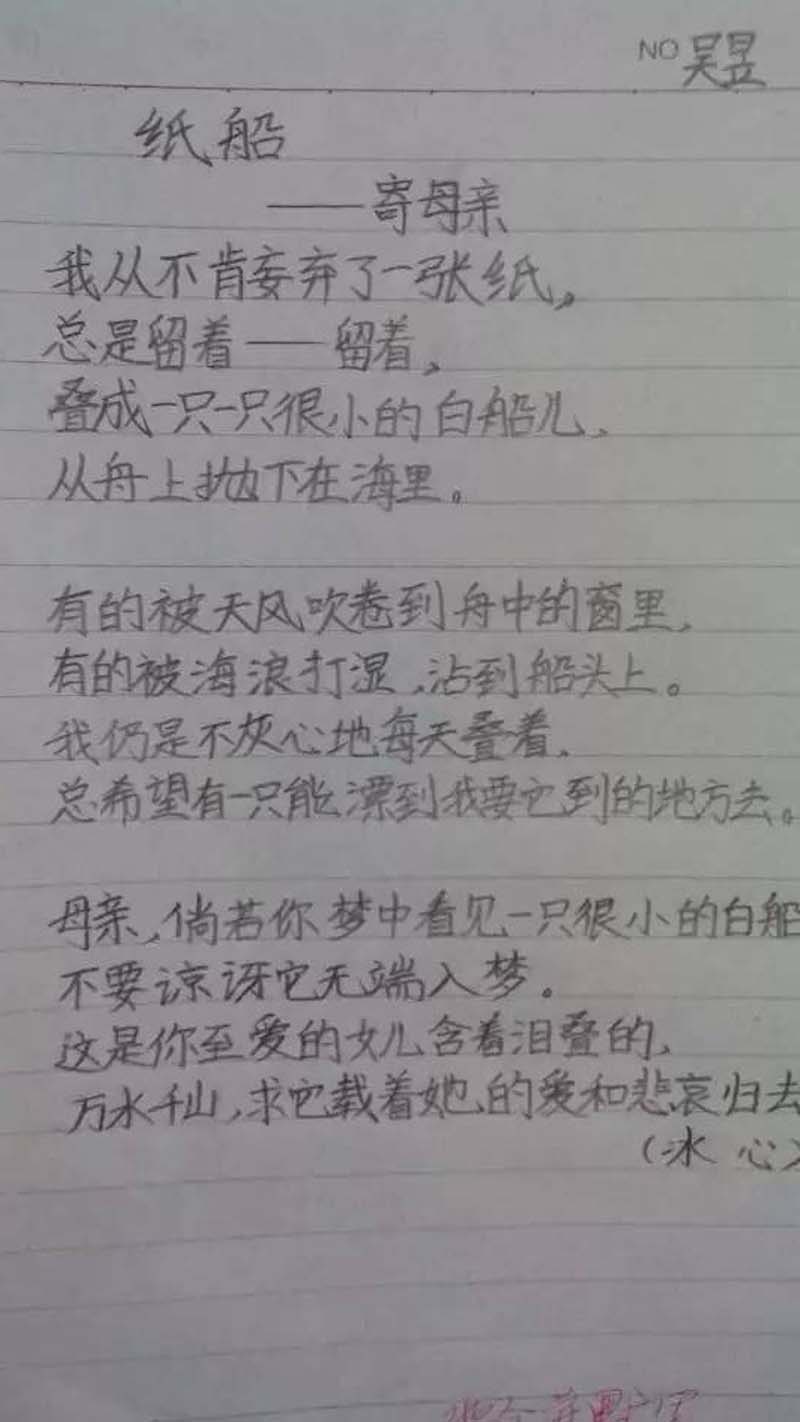 NO 吴昱
纸船
——寄母亲
我从不肯妄弃了一张纸,
总是留着——留着,
叠成一只一只很小的白船儿,
从舟上抛下在海里。
有的被天风吹卷到舟中的窗里,
有的被海浪打湿,沾到船头上。
我仍是不灰心地每天叠着,
总希望有一只能漂到我要它到的地方去。
母亲,倘若你梦中看见一只很小的白船
不要谅讶它无端入梦。
这是你至爱的女儿含着泪叠的,
万水千山,求它载着她的爱和悲哀归去
(冰心)